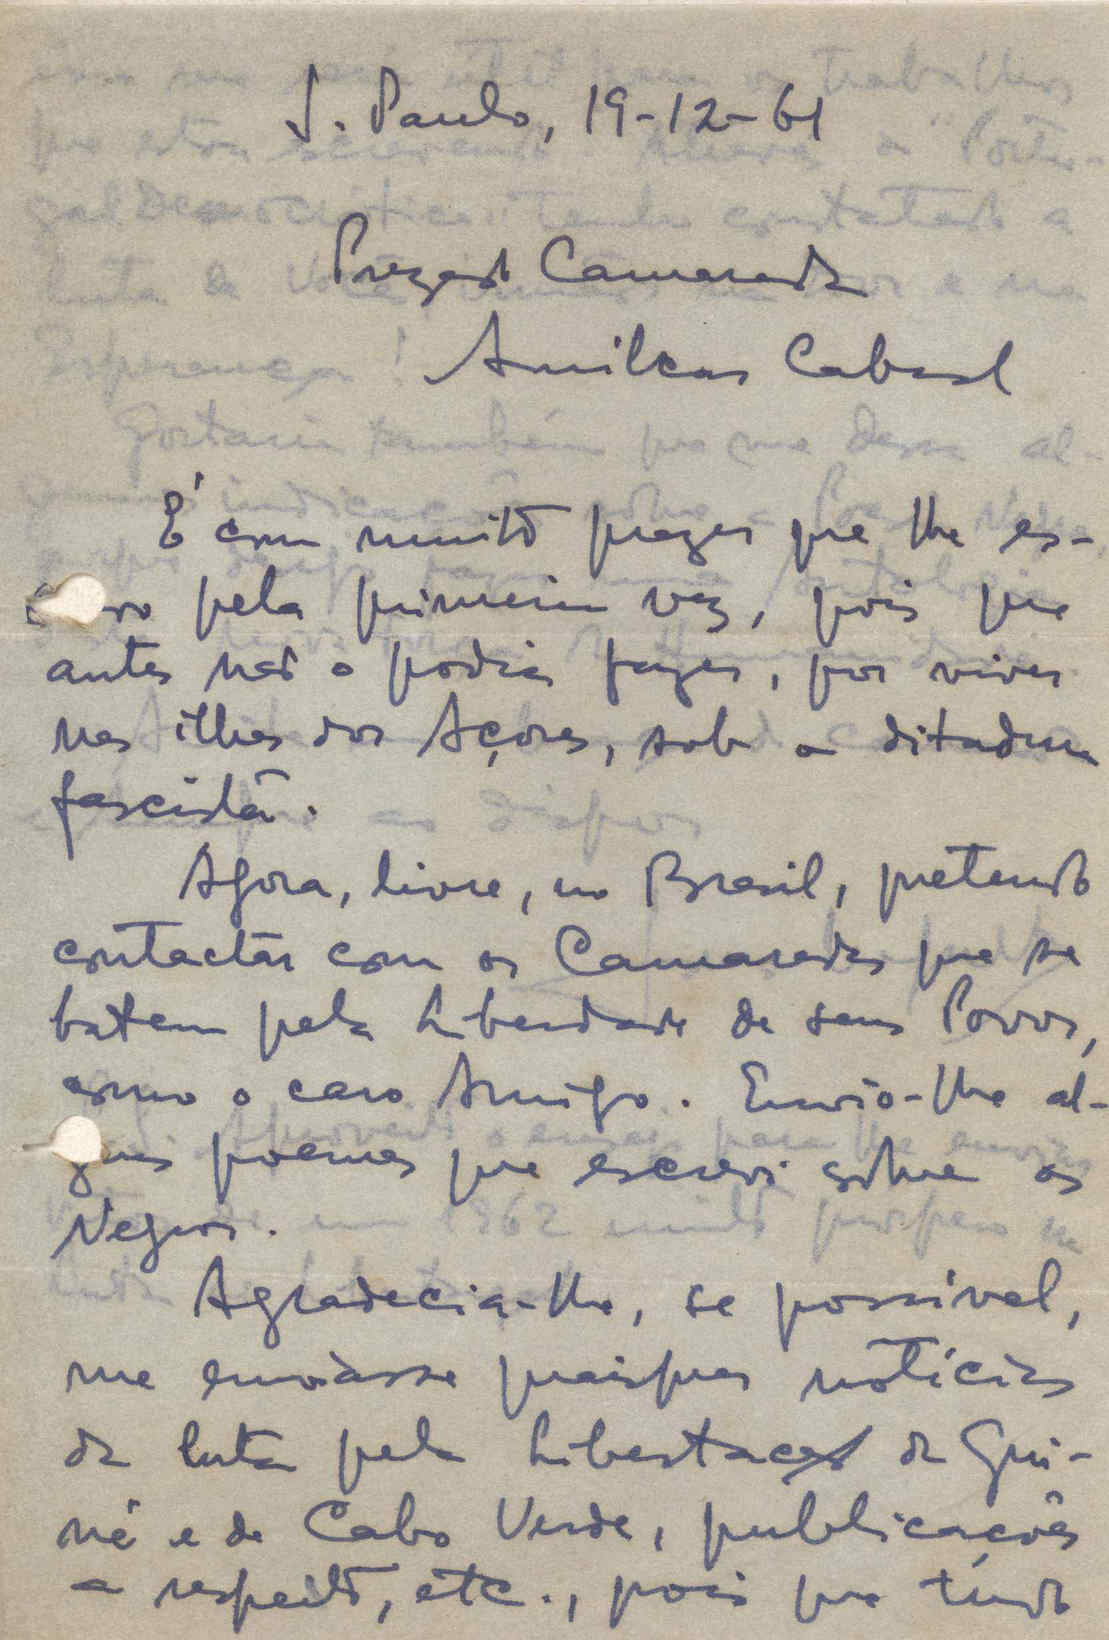 S. Paulo, 19-12-61
Prezado Camarada
Amilcar Cabral
É com muito prazer que lhe es-
crevo pela primeira vez, pois que
antes não o podia fazer, por viver
nas ilhas dos Açores, sob a ditadura
fascista.
Agora, livre, no Brasil, pretendo
contactar com os Camaradas que se
batem pela Liberdade de seus Povos,
como o caro Amigo. Envio-lhe al-
guns poemas que escrevi sobre os
Negros.
Agradecia-lhe, se possível,
me enviasse quaisquer notícias
da luta pela Libertação da Gui-
né e de Cabo Verde, publicações
a respeito, etc., pois que tudo